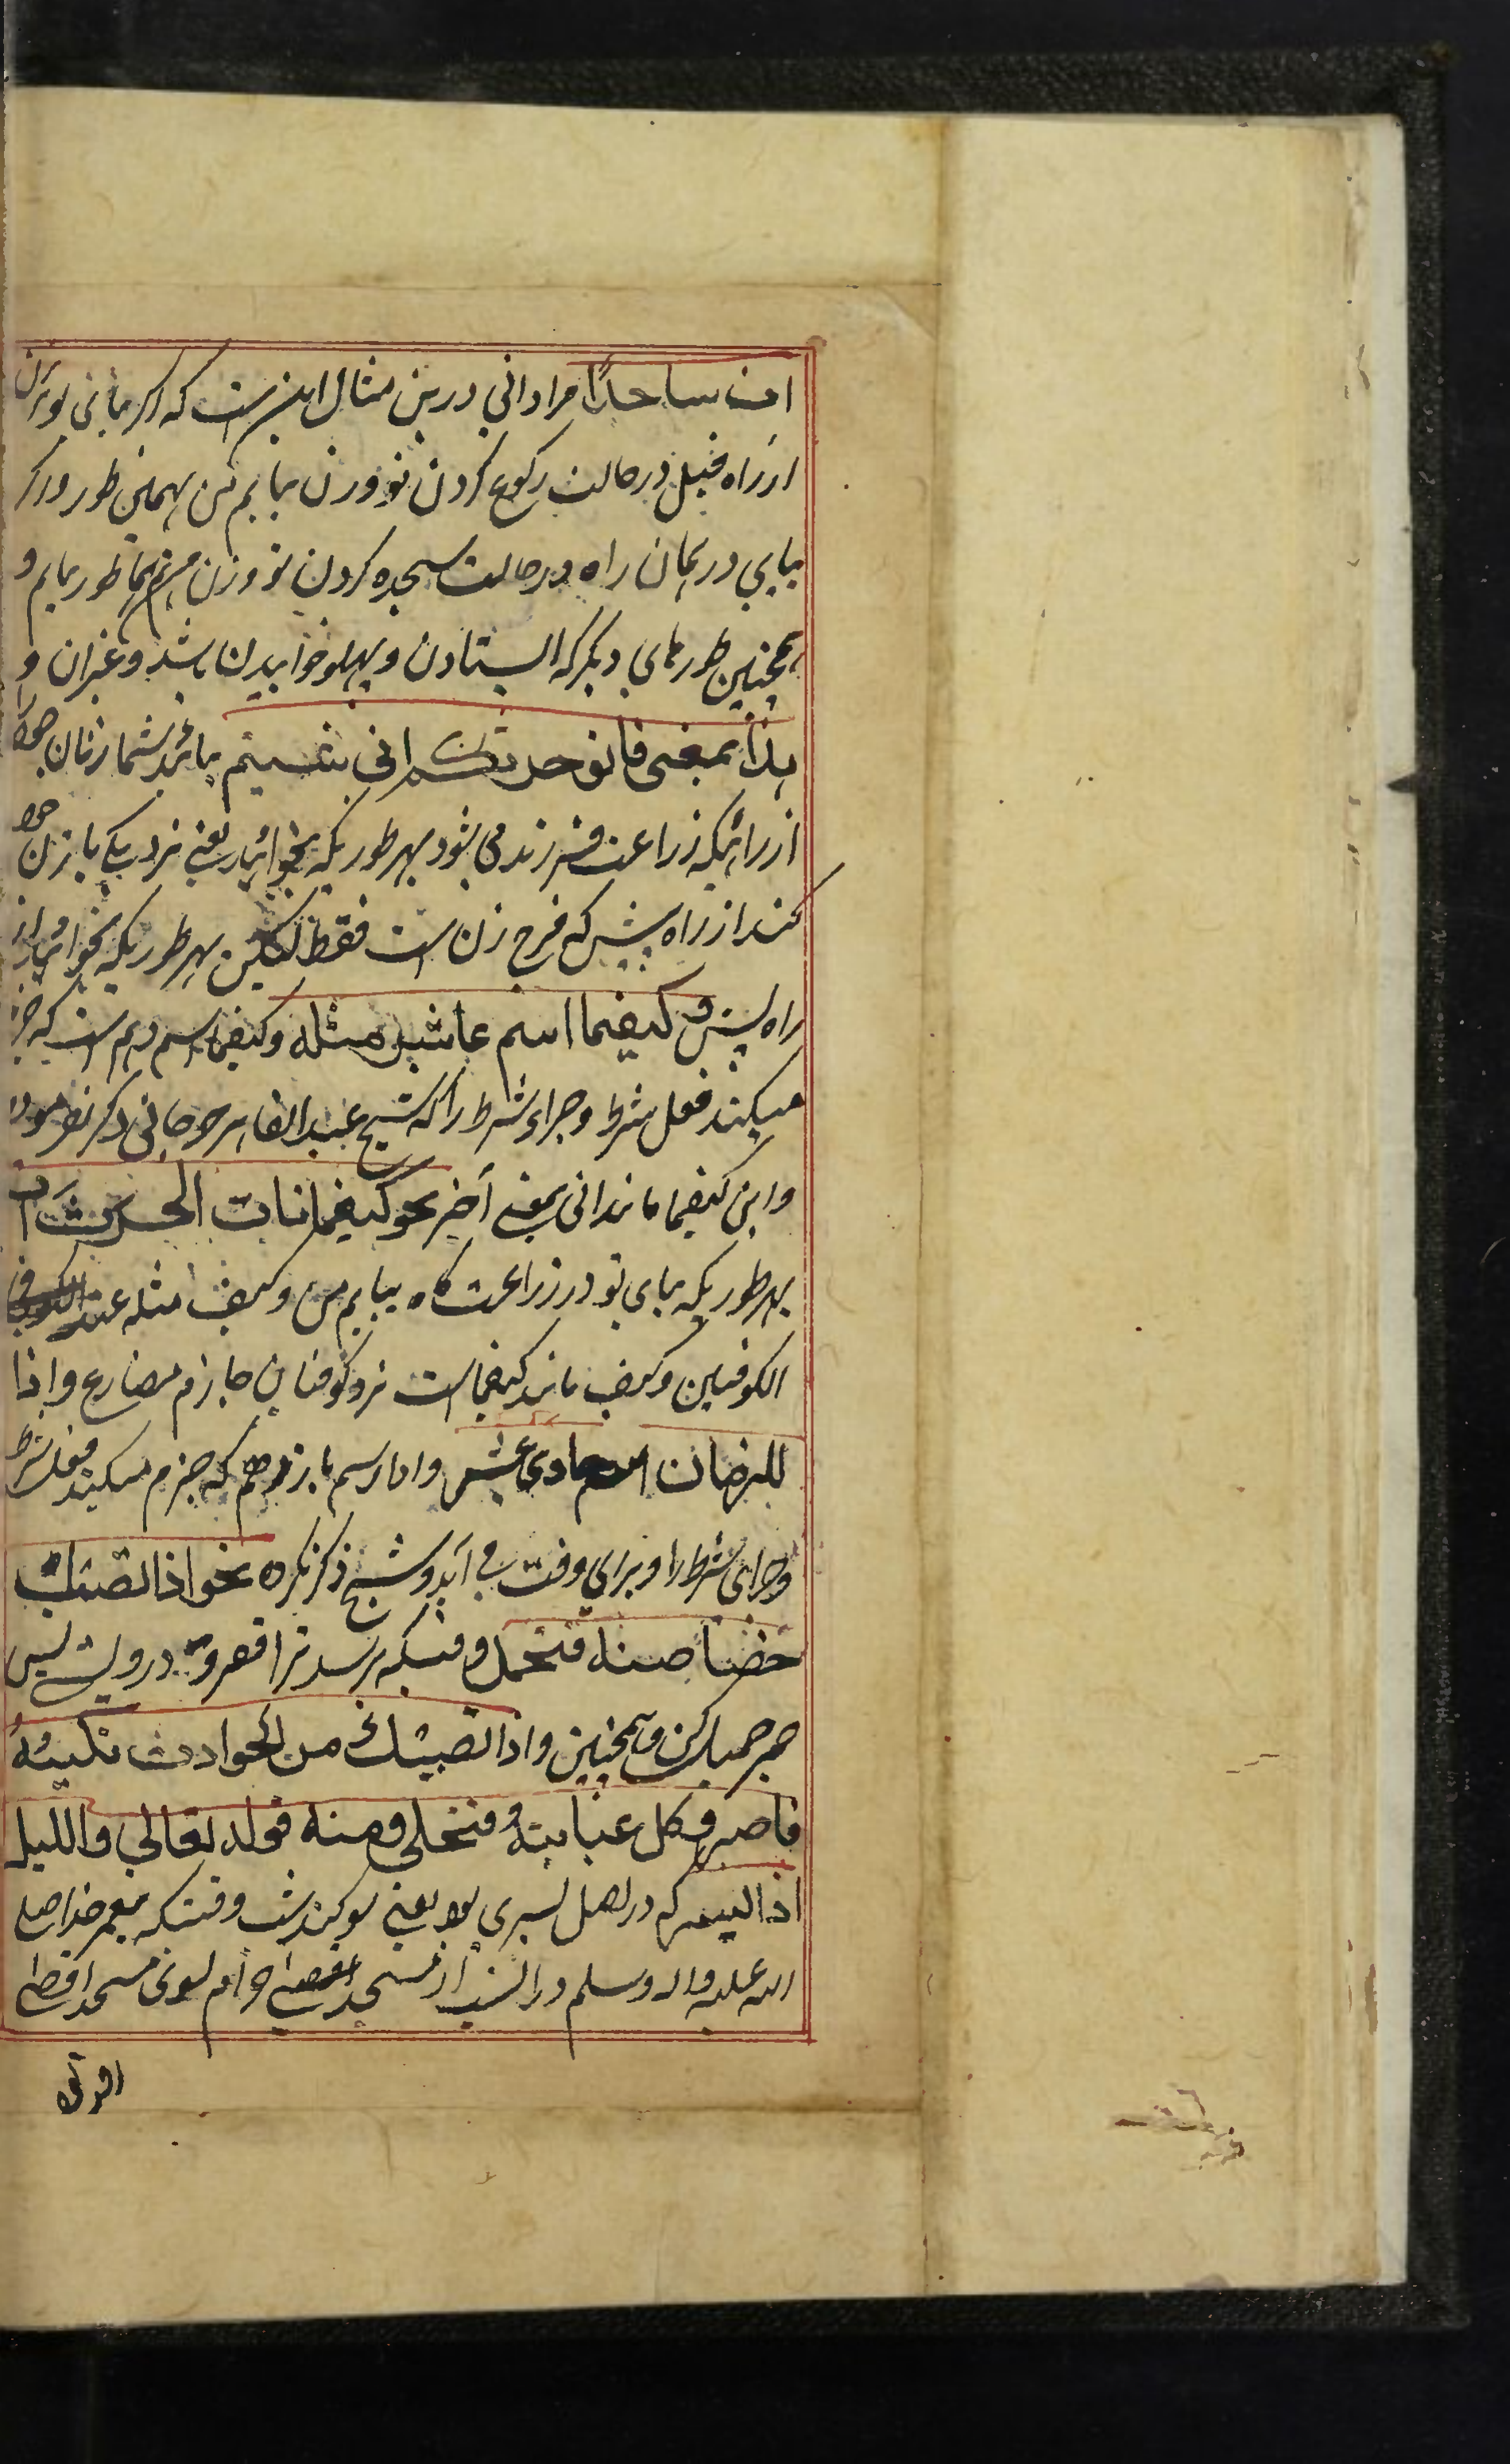 ات ساجدًا مراد انی درین مثال این است که اگر بیائی تو بزن
از راه قبل در حالت رکوع کردن تو و زن بیایم من بهمین طور و اگر
بیایی در همان راه در حالت سجده کردن تو و زن من هم بهمان طور بیایم و
همچنین طورهای دیگر که ایستادن و پهلو خوابیدن باشد و غیران و
هذا بمعنی فاتوا حرثکم انی شئتم بیائید شما زنان خود را
از راهیکه زراعت فرزند می شود بهر طوریکه بخواهید یعنی نزدیکی با زن خود
کنند از راه پیش که فرج زن است فقط لیکن بهر طوریکه بخواهید از
راه پس و کیفما اسم عاشر مثله و کیفما اسم دهم است که جزم
میکند فعل شرط و جزاء شرط را که شیخ عبد القاهر جرجانی ذکر نفرموده
و این کیفما مانند انی بمعنی آخر نحو کیفما تات الحرث آت
بهر طوریکه بیای تو در زراعت گاه بیایم من و کیف مثله عند
الکوفیین و کیف مانند کیفما است نزد کوفیان جازم مضارع و اذا
للزمان الحادی عشر و اذا اسم یازدهم که جزم میکند فعل شرط
و جزای شرط را و برای وقت می آید و شیخ ذکر نکرده نحو اذا تصبک
خصاصة فتحمل وقتیکه برسد ترا فقر و درویشی پس
صبر جمیل کن و همچنین و اذا تصبک من الحوادث نکبة
فاصبر فکل غیابة فتنجلی و منه قوله تعالی واللیل
اذا یسر که در اصل یسری بود یعنی سوگند بشب وقتیکه پیغمبر خدا صلی
الله علیه واله وسلم در آن شب از مسجد حرام بسوی مسجد اقصی